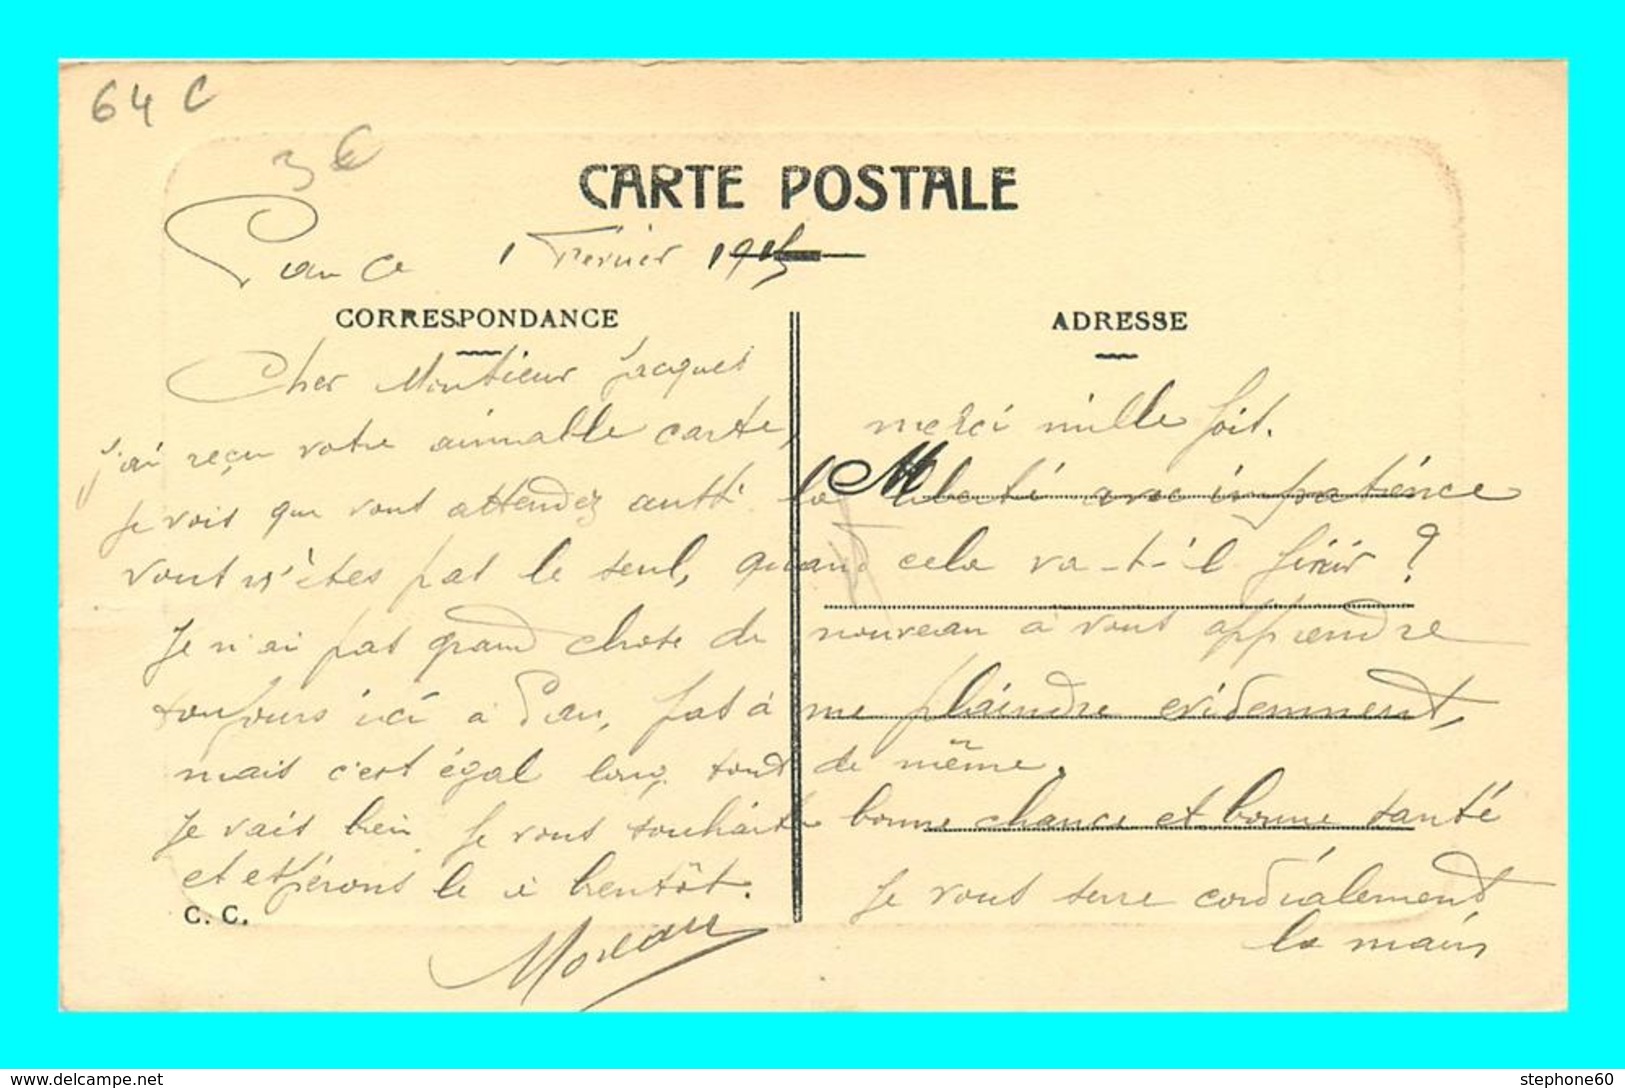 64 C
3 €
CARTE POSTALE
1 Février 1915
CORRESPONDANCE
ADRESSE
Cher Monsieur Jacques
j'ai reçu votre aimmable carte, merci mille fois.
Je vois que vous attendez aussi la liberté avec impatience
vous n'êtes pas le seul, quand cela va-t-il finir ?
Je n'ai pas grand chose de nouveau à vous apprendre
toujours ici à Pau, pas à me plaindre évidemment,
mais c'est égal long tout de même.
Je vais bien Je vous souhaite bonne chance et bonne santé
et espérons le à bientôt. Je vous serre cordialement
la main
C. C.
Moreau
delcampe.net
stephone60